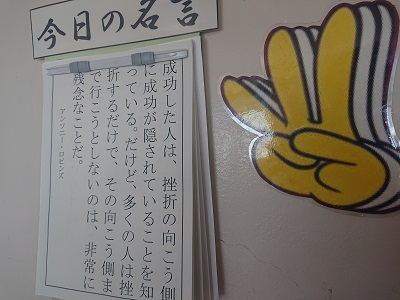 今日の名言
成功した人は、挫折の向こう側
に成功が隠されていることを知
っている。だけど、多くの人は挫
折するだけで、その向こう側ま
で行こうとしないのは、非常に
残念なことだ。
アンソニー・ロビンズ